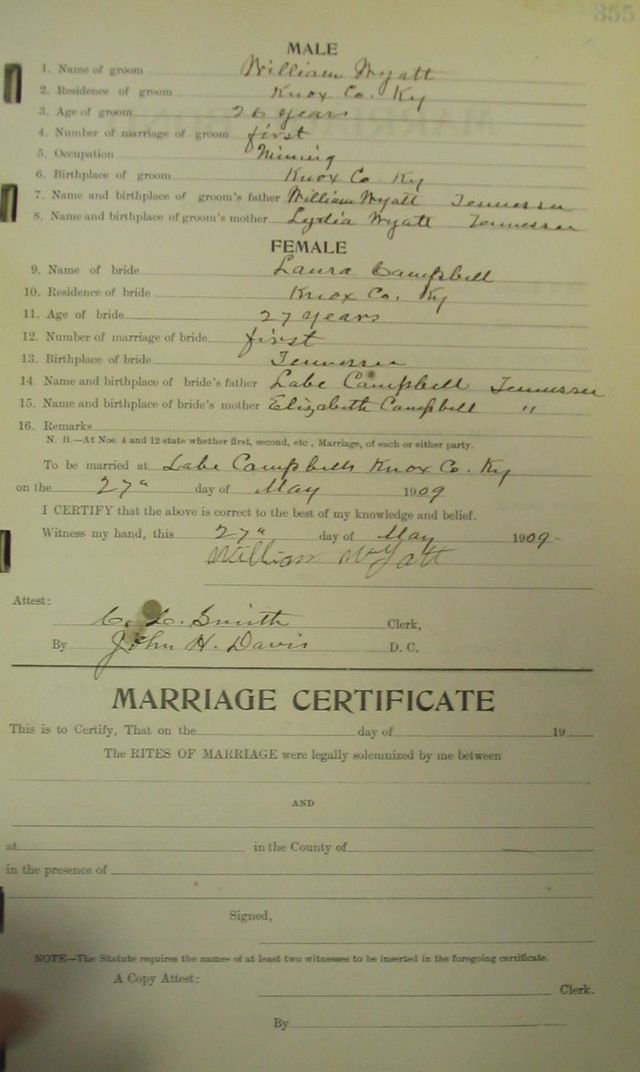 355
MALE
1. Name of groom William Wyatt
2. Residence of groom Knox Co. Ky
3. Age of groom 26 years
4. Number of marriage of groom first
5. Occupation Mining
6. Birthplace of groom Knox Co Ky
7. Name and birthplace of groom's father William Wyatt Tennessee
8. Name and birthplace of groom's mother Lydia Wyatt Tennessee
FEMALE
9. Name of bride Laura Campbell
10. Residence of bride Knox Co. Ky
11. Age of bride 27 years
12. Number of marriage of bride first
13. Birthplace of bride Tennessee
14. Name and birthplace of bride's father Labe Campbell Tennessee
15. Name and birthplace of bride's mother Elizabeth Campbell "
16. Remarks
N. B.—At Nos. 4 and 12 state whether first, second, etc., Marriage, of each or either party.
To be married at Labe Campbells Knox Co. Ky
on the 27" day of May 1909
I CERTIFY that the above is correct to the best of my knowledge and belief.
Witness my hand, this 27" day of May 1909-
William Wyatt
Attest:
C. L. Smith Clerk,
By John H. Davis D. C.
MARRIAGE CERTIFICATE
This is to Certify, That on the day of 19
The RITES OF MARRIAGE were legally solemnized by me between
AND
at in the County of
in the presence of
Signed,
NOTE—The Statute requires the names of at least two witnesses to be inserted in the foregoing certificate.
A Copy Attest:
Clerk.
By